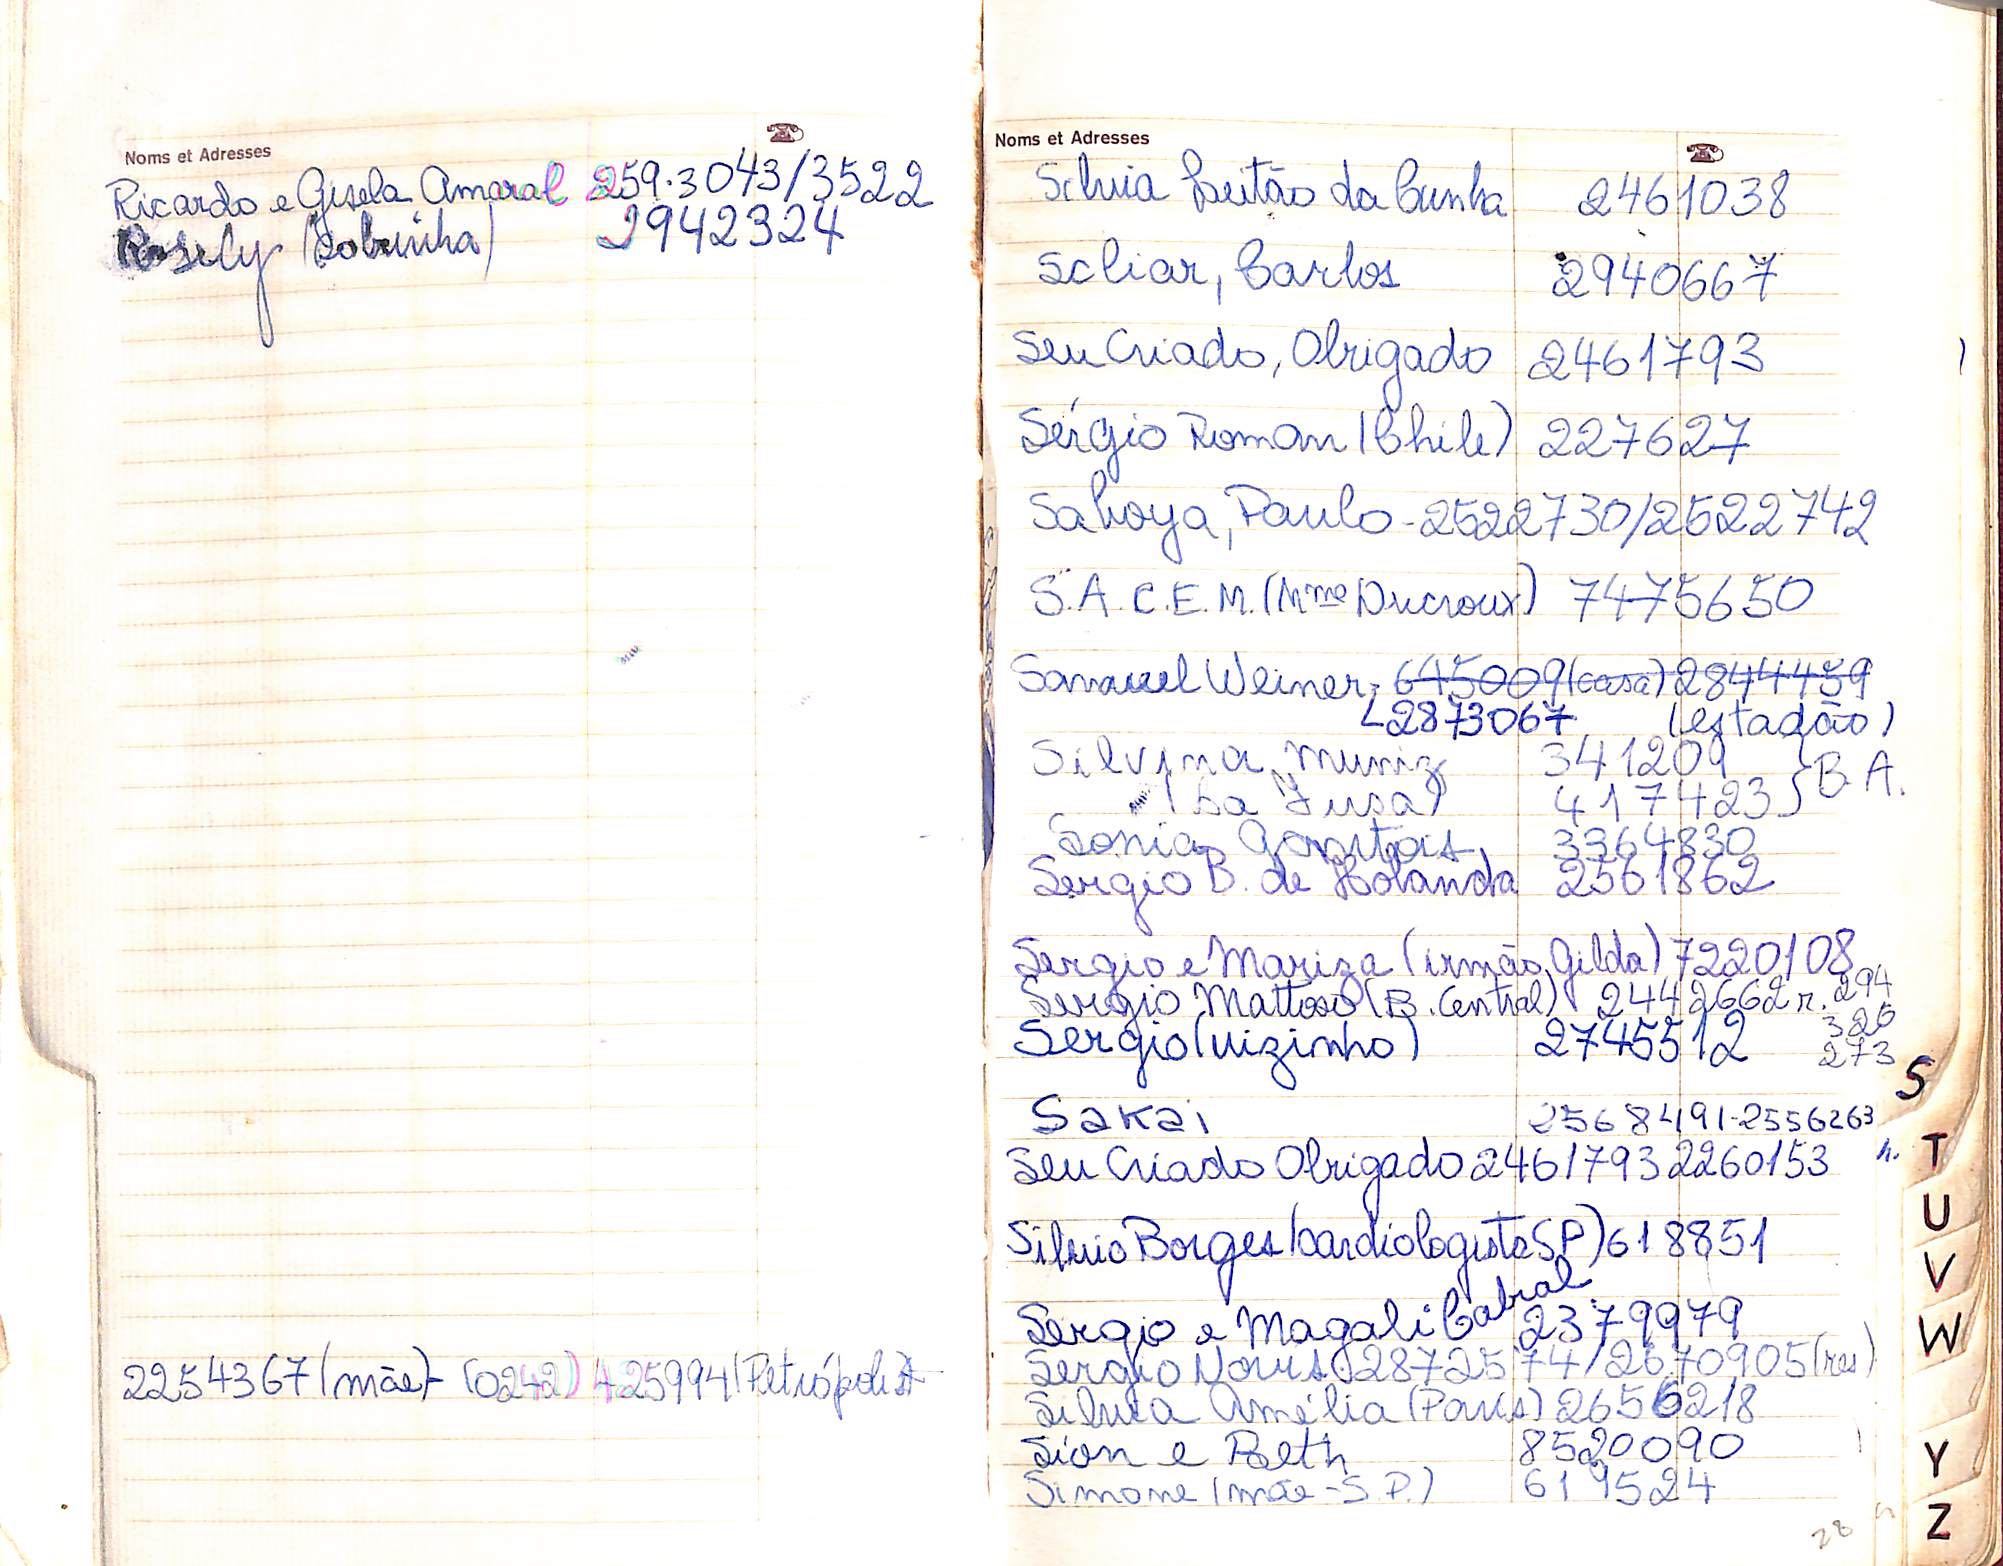 Noms et Adresses
Ricardo e Gisela Amaral 259.3043/3522
Rosely (sobrinha) 2942324
2254367 (mãe) - (0242) 425994 (Petrópolis)
Noms et Adresses
Silvia Leitão da Cunha 2461038
Scliar, Carlos 2940667
Seu Criado, Obrigado 2461793
Sérgio Roman (Chile) 227627
Saboya, Paulo - 2522730/2522742
S.A.C.E.M. (Mme Ducroux) 7475650
Samuel Weiner - 645009 (casa) 2844459
2873067 (estadão)
Silvina Muniz 341209
(La Fusa) 417423 } B.A.
Sonia 3364830
Sergio B. de Holanda 2561862
Sergio e Mariza (irmão Gilda) 7220108
Sergio Mattoso (B. Central) 2442662 r. 294
326
Sergio (vizinho) 2745512
273
Sakai 2568491-2556263
Seu Criado Obrigado 2461793 2260153 h.
Silvio Borges (cardiologista SP) 618851
Sergio e Magali Cabral 2379979
Sergio 2872574/2670905 (res)
Silvia Amélia (Paris) 2656218
Sion e Beth 8520090
Simone (mãe - S.P.) 619524
28
S
T
U
V
W
Y
Z